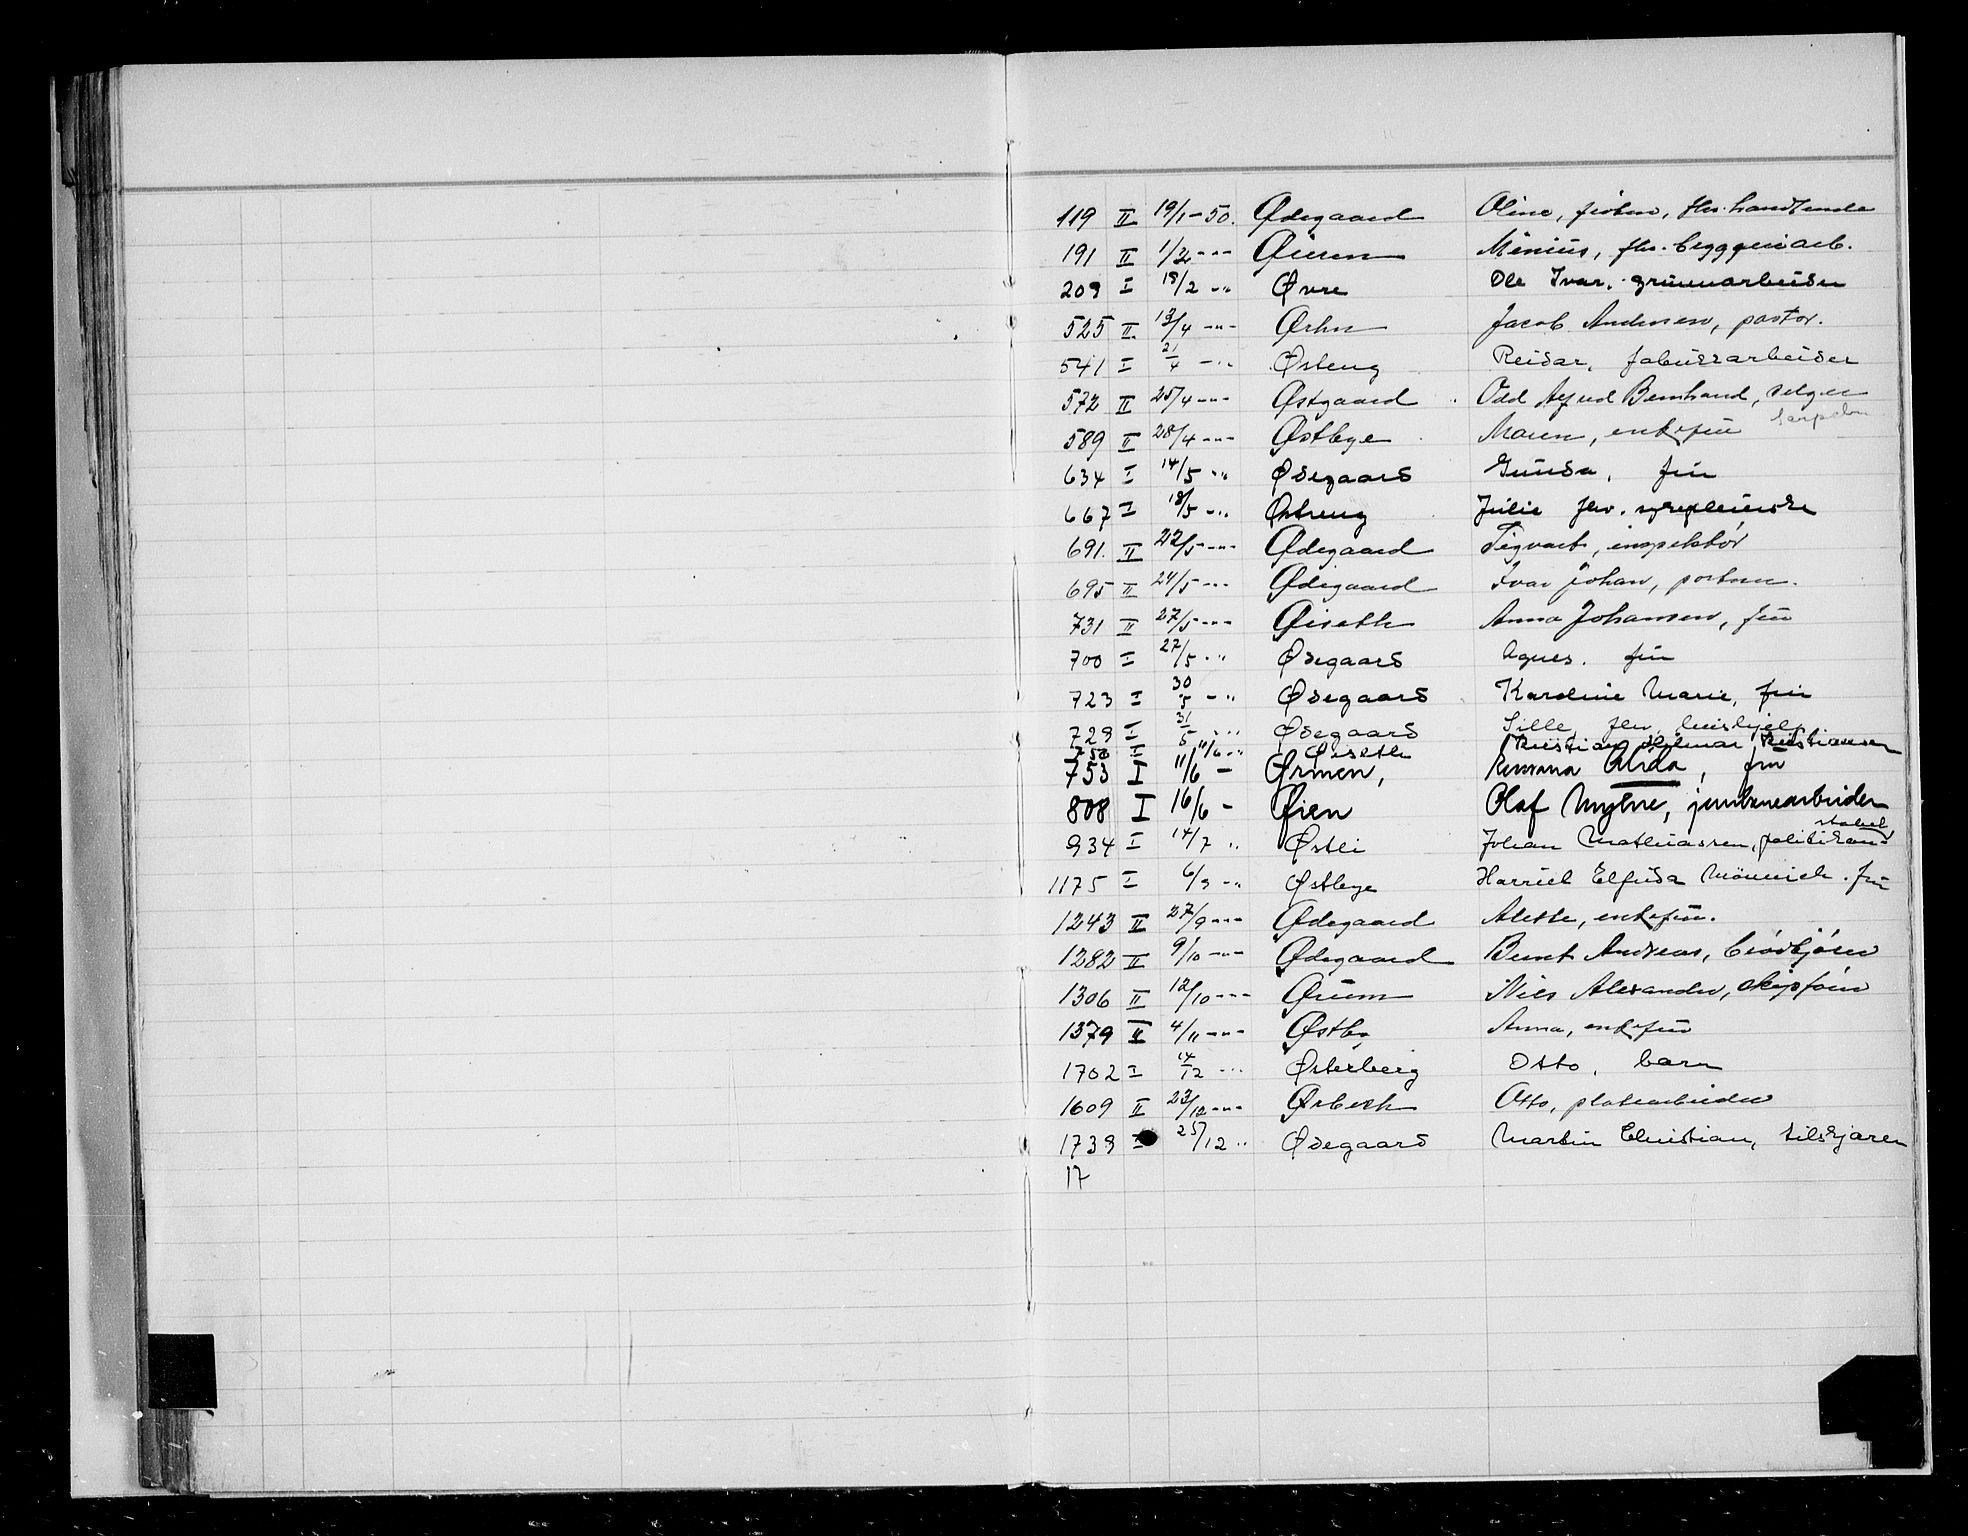 119 II 19/1-50. Ødegaard Oline, frøken, fhv.
191 II 1/2 -"- Øieren Minius, fhv.
209 I 18/2 -" Øvre Ole Ivar. gruvearbeider
525 II. 13/4 -"- Ørhn Jacob Andersen, pastor.
541 I 21/4 -" Østeng Reidar, fabrikkarbeider
572 II 25/4 -"- Østgaard Odd Alfred Bernhard, selger
589 II 28/4 -"- Østbye Maren, enkefru
634 I 14/5 -" Ødegaard Gunda, fru
667 I 18/5 -" Østreng Julie fhv. sykepleierske
691. II 22/5 -"- Ødegaard Sigvart, inspektør
695 II 24/5 -"- Ødegaard Ivar Johan,
731 II 27/5 -"- Øiseth Anna Johansen, fru
700 I 27/5 -" Ødegaard Agnes. fru
723 I 30/5 -" Ødegaard Karoline Marie, fru
729 I 31/5 -" Ødegaard Sille, fhv. hushjelp
758 I 11/6 -" Øiseth Kristian Hilmar Kristiansen
753 I 11/6 - Ørmen, Romana Alida, fru
808 I 16/6 - Øien Olaf Myhre, jernbanearbeider
stabel
934 I 14/7 " Østli Johan Mathiassen, politikon-
1175 I 6/9 -" Østbye Harriet Elfrida Mönnich. fru
1243 II 27/9 -"- Ødegaard Alette, enkefru.
1282 II 9/10 -"- Ødegaard Bernt Andreas, brødkjører
1306 II 12/10 -"- Ørum Nils Alexander, skipsfører
1379 II 4/11 -"- Østby Anna, enkefru
1702 I 14/12 -" Østerberg Otto, barn
1609 II 23/12 -"- Ørbeck Otto, platearbeider
1739 I 25/12 " Ødegaard Martin Christian, tilskjærer
17